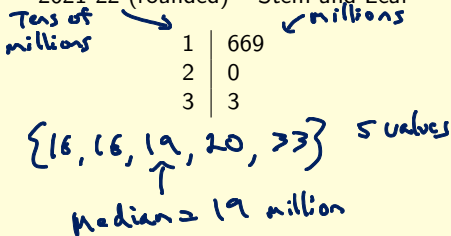 2021-22 (rounded) Stem and Leaf
Tens of millions
millions
1 | 669
2 | 0
3 | 3
{16, 16, 19, 20, 33} 5 values
Median = 19 million